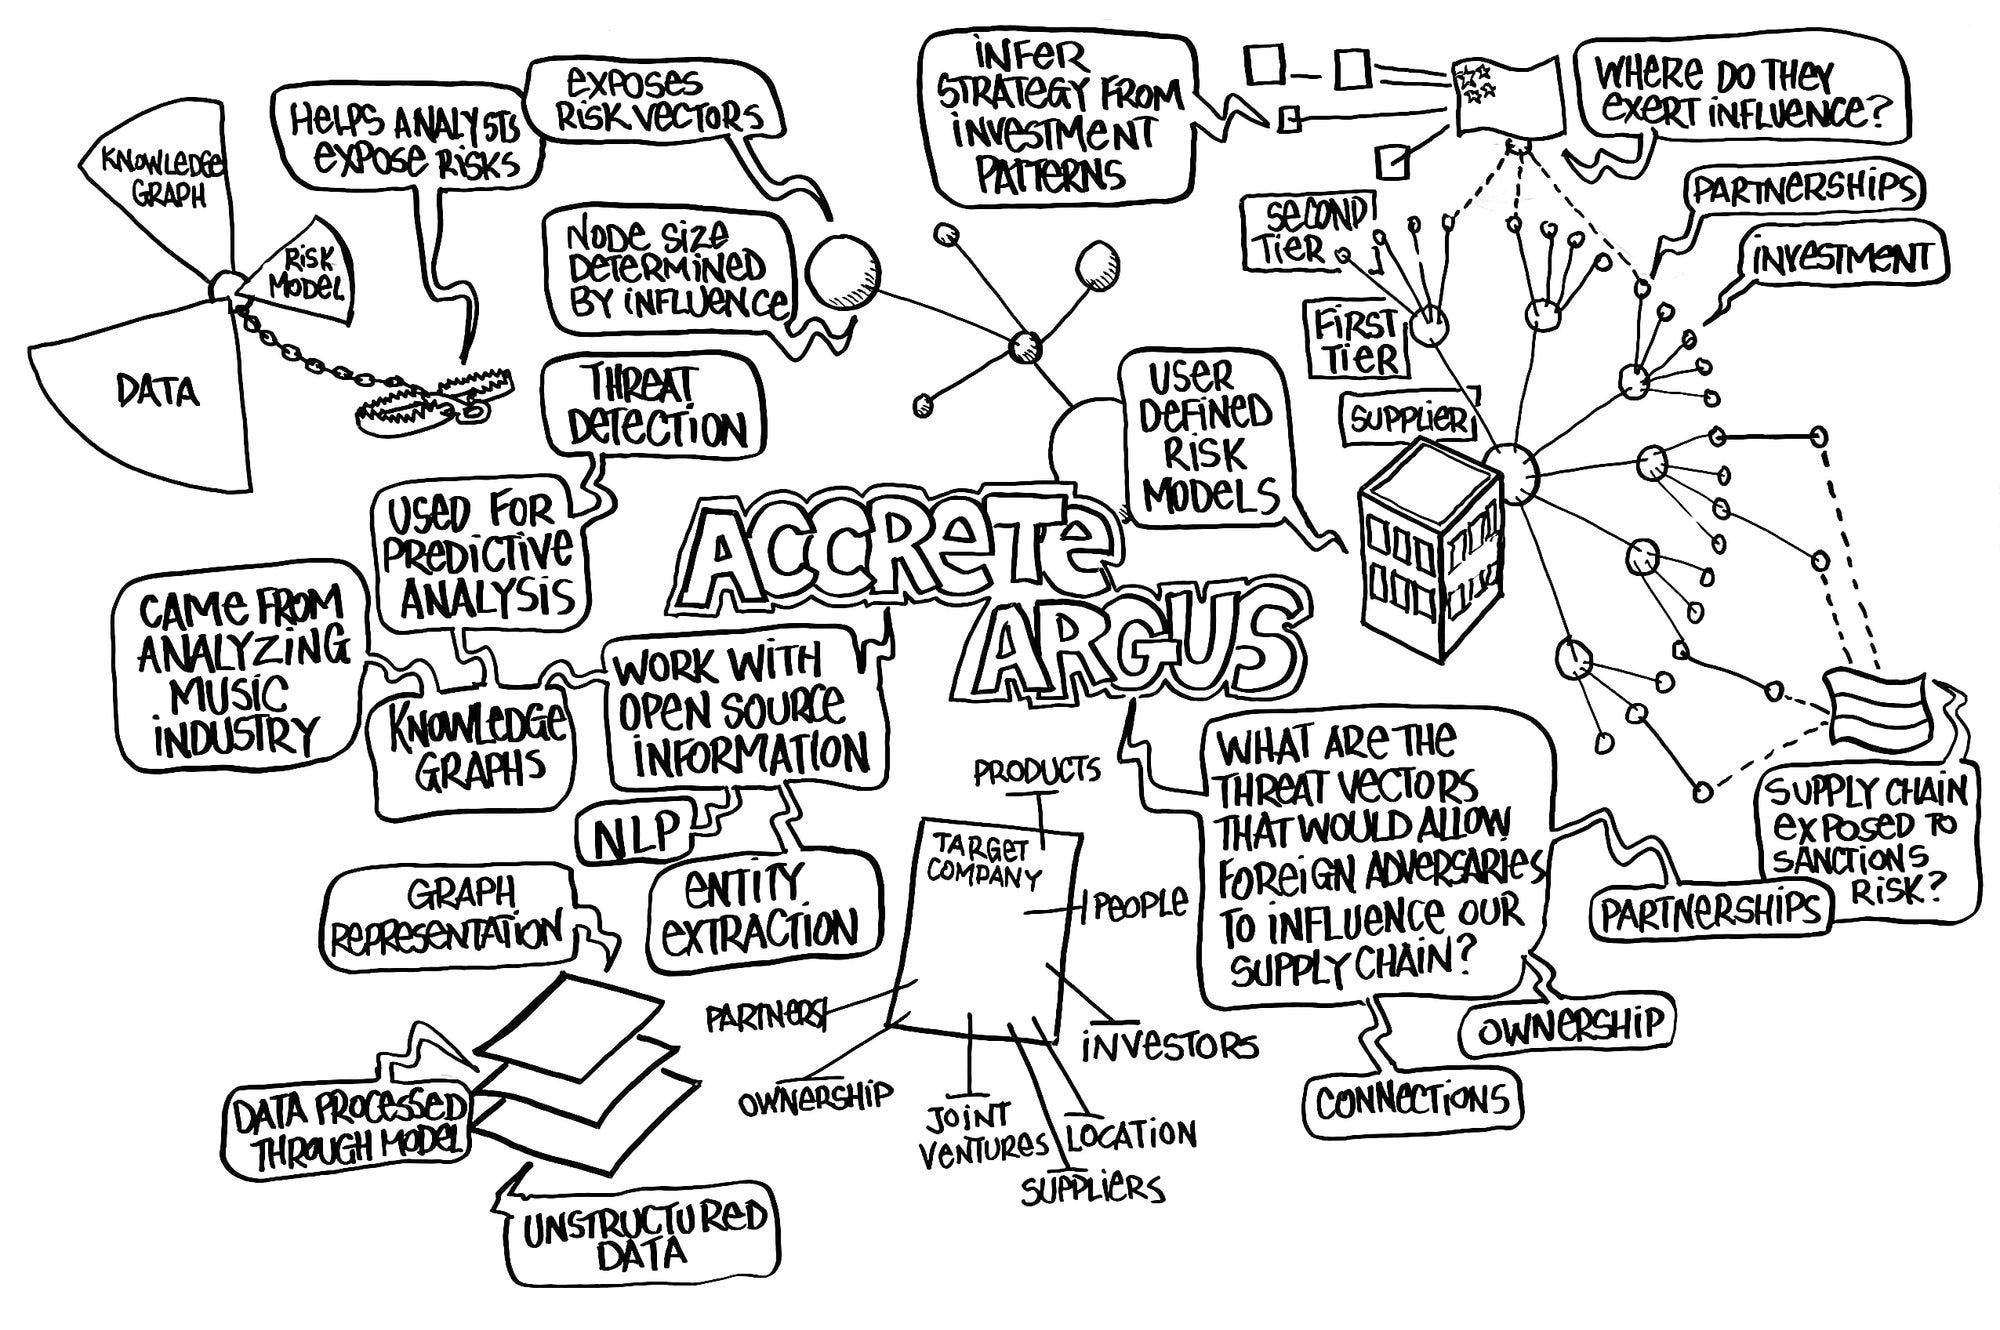 KNOWLEDGE
GRAPH
RISK
MODEL
DATA
HELPS ANALYSTS
EXPOSE RISKS
EXPOSES
RISK VECTORS
NODE SIZE
DETERMINED
BY INFLUENCE
THREAT
DETECTION
USED FOR
PREDICTIVE
ANALYSIS
CAME FROM
ANALYZING
MUSIC
INDUSTRY
KNOWLEDGE
GRAPHS
WORK WITH
OPEN SOURCE
INFORMATION
NLP
ENTITY
EXTRACTION
GRAPH
REPRESENTATION
DATA PROCESSED
THROUGH MODEL
UNSTRUCTURED
DATA
ACCRETE
ARGUS
INFER
STRATEGY FROM
INVESTMENT
PATTERNS
WHERE DO THEY
EXERT INFLUENCE?
PARTNERSHIPS
INVESTMENT
SECOND
TIER
FIRST
TIER
SUPPLIER
USER
DEFINED
RISK
MODELS
PRODUCTS
TARGET
COMPANY
PEOPLE
INVESTORS
LOCATION
SUPPLIERS
JOINT
VENTURES
OWNERSHIP
PARTNERS
WHAT ARE THE
THREAT VECTORS
THAT WOULD ALLOW
FOREIGN ADVERSARIES
TO INFLUENCE OUR
SUPPLY CHAIN?
PARTNERSHIPS
OWNERSHIP
CONNECTIONS
SUPPLY CHAIN
EXPOSED TO
SANCTIONS
RISK?